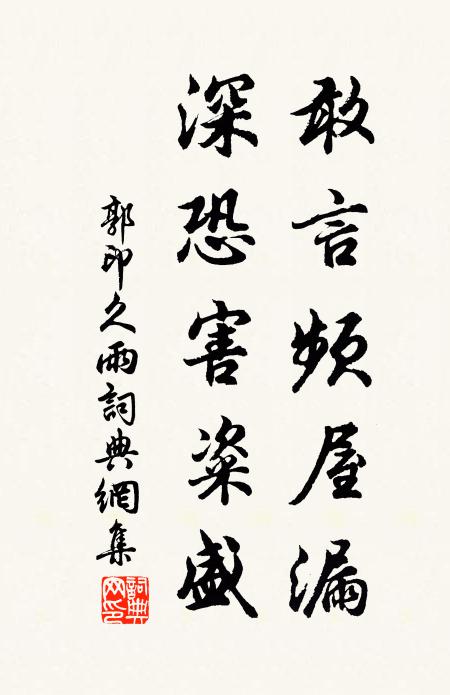 敢言頻屋漏
深恐害粢盛
郭印久雨詞典網集
詞典网印